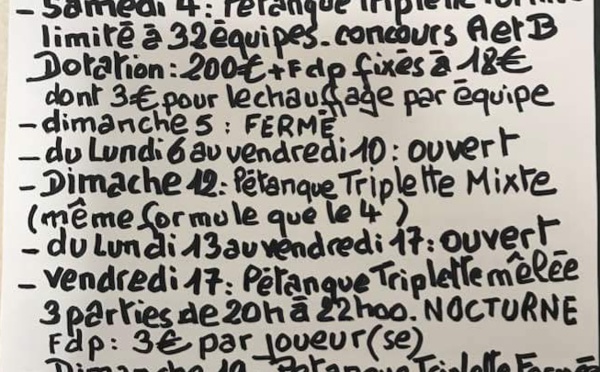 - Samedi 4: Pétanque Triplette
limité à 32 équipes. concours A et B
Dotation: 200€ + Fdp fixés à 18€
dont 3€ pour le chauffage par équipe
- dimanche 5: FERMÉ
- du Lundi 6 au vendredi 10: ouvert
- Dimache 12: Pétanque Triplette Mixte
(même formule que le 4)
- du Lundi 13 au vendredi 17: ouvert
- vendredi 17: Pétanque Triplette mêlée
3 parties de 20h à 22h00. NOCTURNE
Fdp: 3€ par joueur(se)
Dimanche 19 Pétanque Triplette